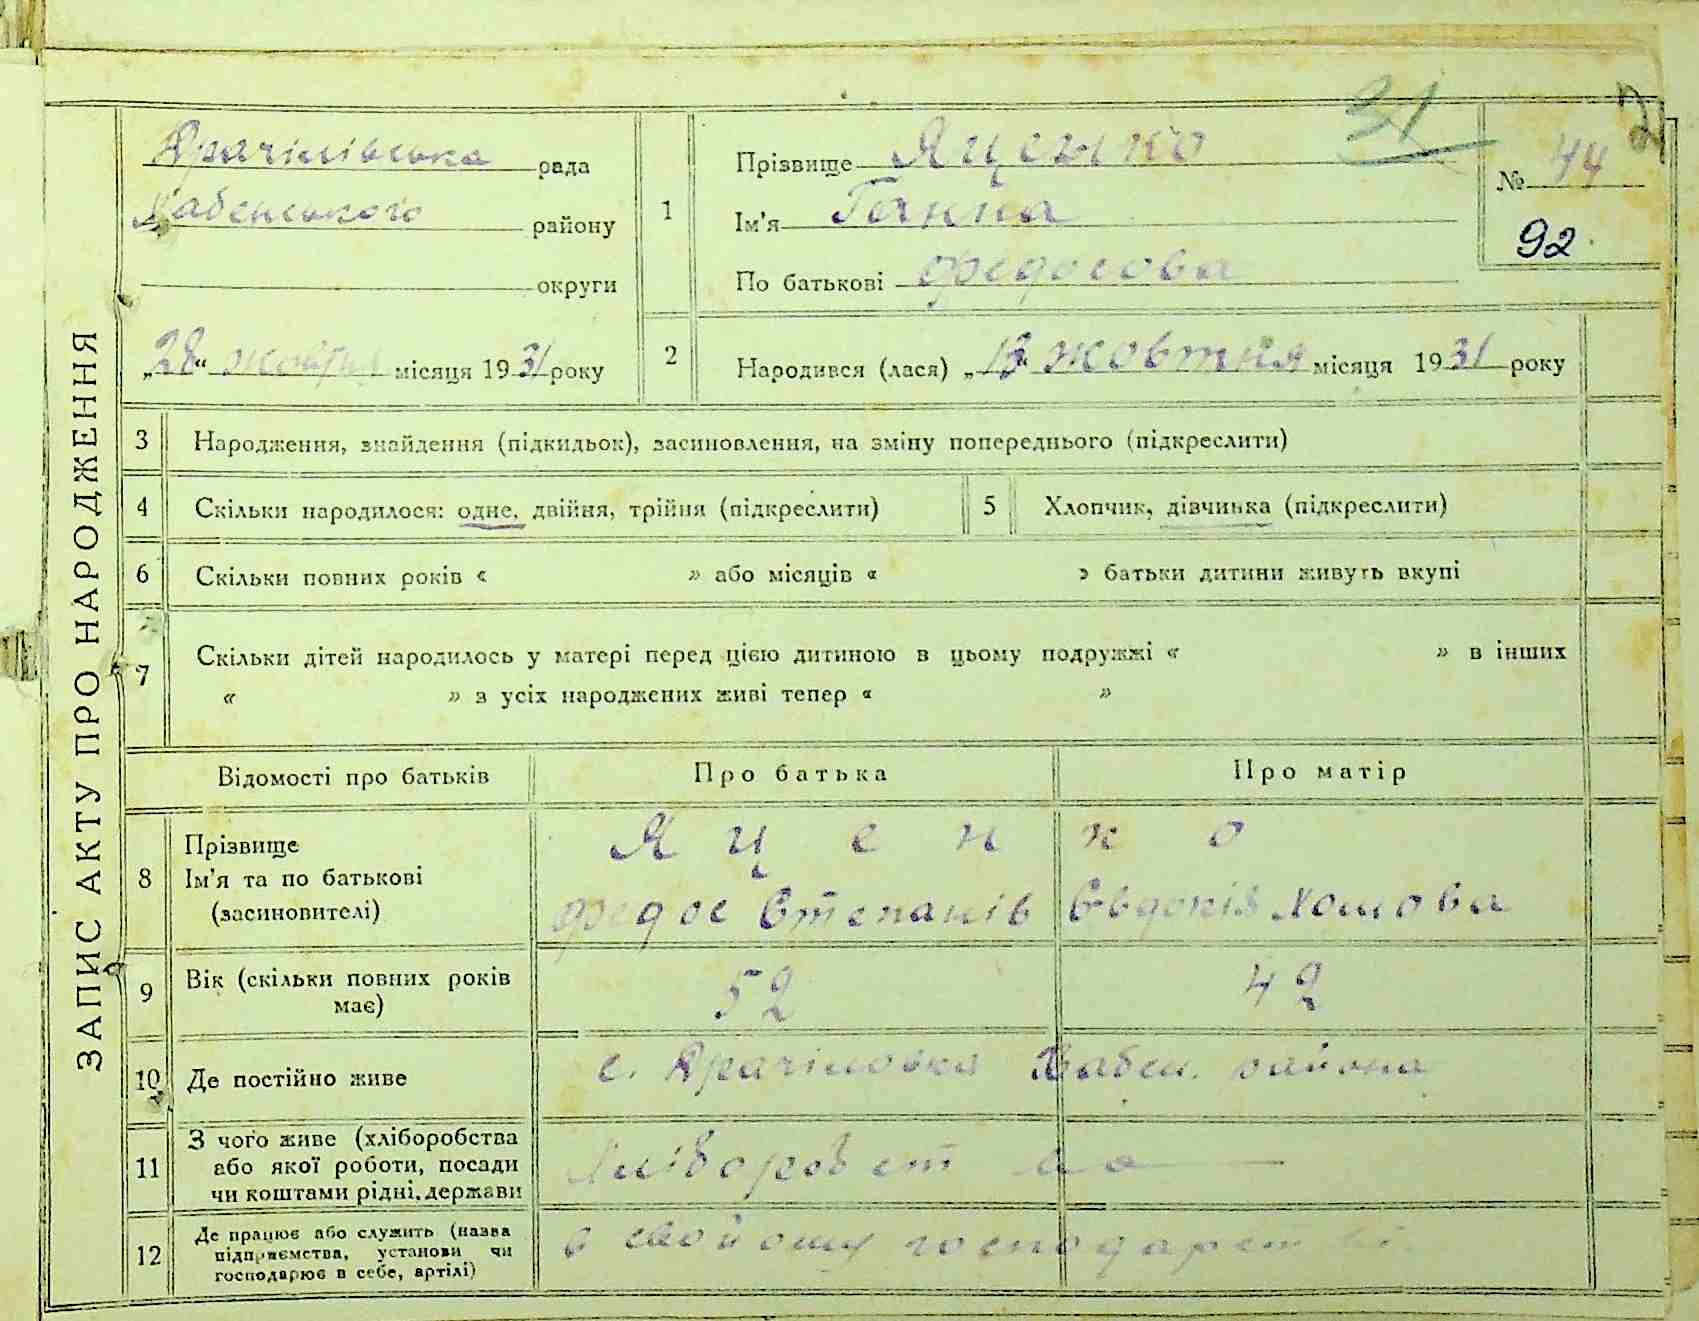 ЗАПИС АКТУ ПРО НАРОДЖЕННЯ
31
2
Драчілівська рада
Хабенського району
округи
„28“ жовтня місяця 1931 року
1
Прізвище Яценко
Ім'я Ганна
По батькові Федосова
№ 44
92
2
Народився (лася) „13“ жовтня місяця 1931 року
3 Народження, знайдення (підкидьок), засиновлення, на зміну попереднього (підкреслити)
4 Скільки народилося: одне, двійня, трійня (підкреслити) 5 Хлопчик, дівчинка (підкреслити)
6 Скільки повних років « » або місяців « » батьки дитини живуть вкупі
7 Скільки дітей народилось у матері перед цією дитиною в цьому подружжі « » в інших
« » з усіх народжених живі тепер « »
Відомості про батьків Про батька Про матір
8 Прізвище
Ім'я та по батькові
(засиновителі)
Яценко
Федос Степанів Євдокія Хомова
9 Вік (скільки повних років
має)
52 42
10 Де постійно живе с. Драчіловка Хабен. района
11 З чого живе (хліборобства
або якої роботи, посади
чи коштами рідні, держави
Хліборобство
12 Де працює або служить (назва
підприємства, установи чи
господарює в себе, артілі)
в свойому господарстві.